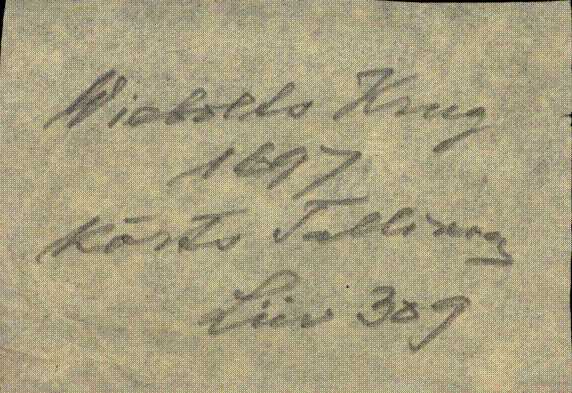 Wiebolts Krug
1697
Kõrts Tallinna
Liiv 309